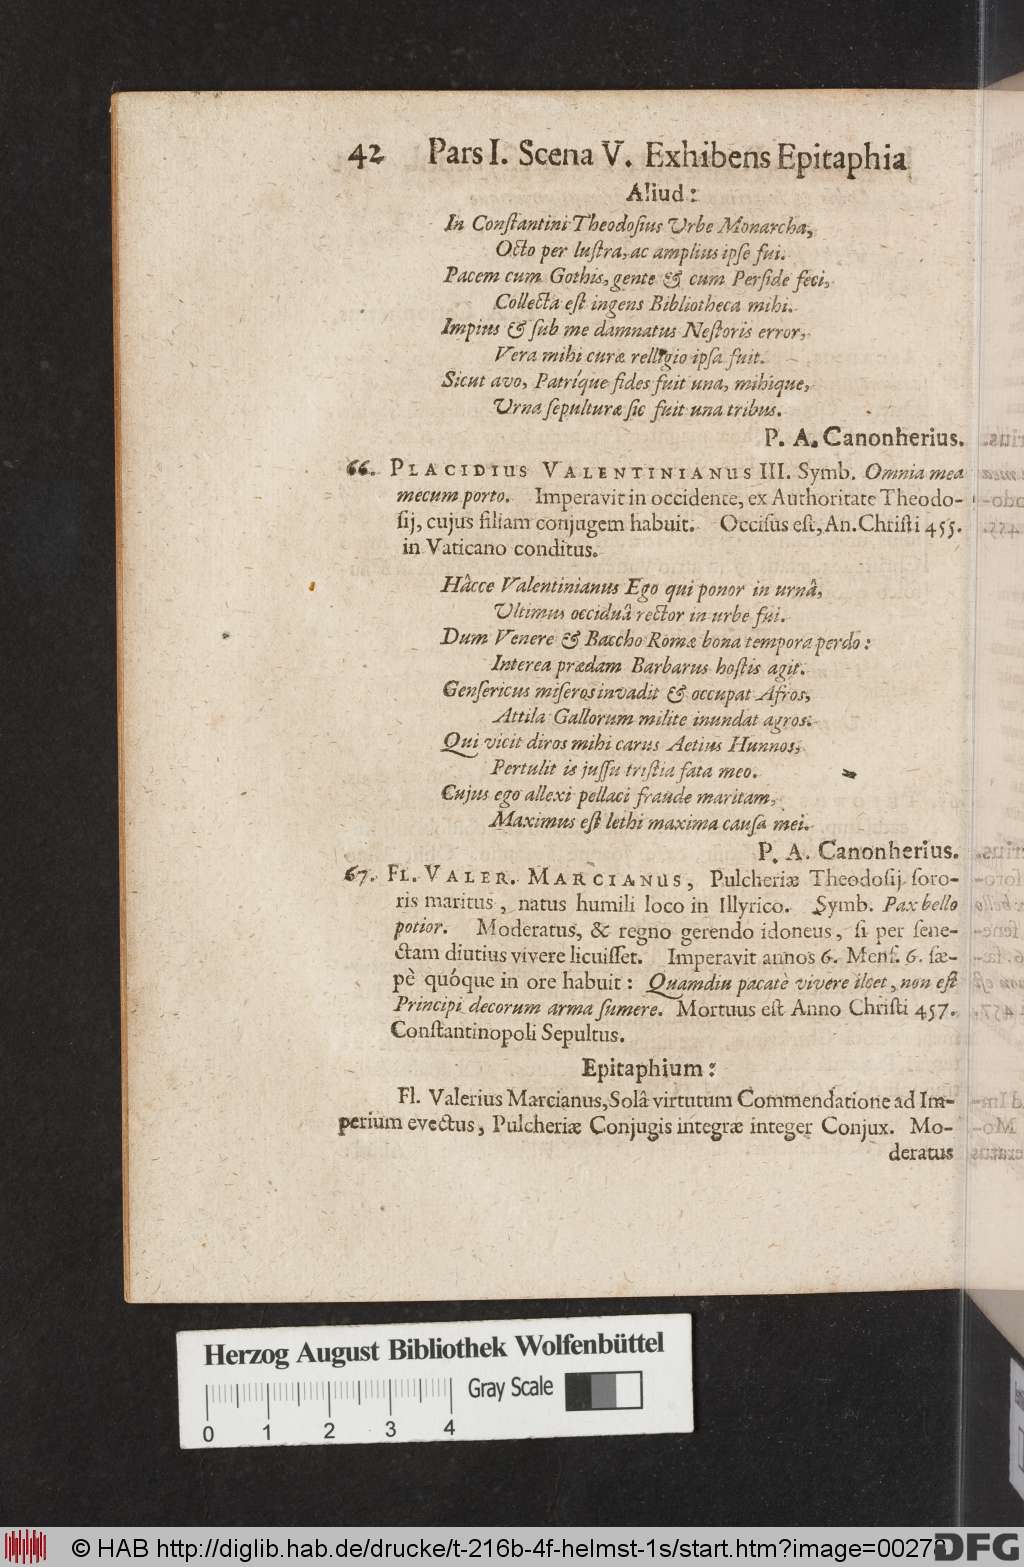 42 Pars I. Scena V. Exhibens Epitaphia
Aliud:
In Conſtantini Theodoſius Urbe Monarcha,
Octo per luſtra, ac amplius ipſe fui.
Pacem cum Gothis, gente & cum Perſide feci,
Collecta eſt ingens Bibliotheca mihi.
Impius & ſub me damnatus Neſtoris error,
Vera mihi curæ relligio ipſa fuit.
Sicut avo, Patríque fides fuit una, mihique,
Urna ſepulturæ ſic fuit una tribus.
P. A. Canonherius.
66. PLACIDIUS VALENTINIANUS III. Symb. Omnia mea
mecum porto. Imperavit in occidente, ex Authoritate Theodo-
ſij, cujus filiam conjugem habuit. Occiſus eſt, An. Chriſti 455.
in Vaticano conditus.
Hâcce Valentinianus Ego qui ponor in urnâ,
Ultimus occiduâ rector in urbe fui.
Dum Venere & Baccho Romæ bona tempora perdo:
Interea prædam Barbarus hoſtis agit.
Genſericus miſeros invadit & occupat Afros,
Attila Gallorum milite inundat agros.
Qui vicit diros mihi carus Aetius Hunnos,
Pertulit is juſſu triſtia fata meo.
Cujus ego allexi pellaci fraude maritam,
Maximus eſt lethi maxima cauſa mei.
P. A. Canonherius.
67. FL. VALER. MARCIANUS, Pulcheriæ Theodoſij ſoro-
ris maritus, natus humili loco in Illyrico. Symb. Pax bello
potior. Moderatus, & regno gerendo idoneus, ſi per ſene-
ctam diutius vivere licuiſſet. Imperavit annos 6. Menſ. 6. ſæ-
pè quóque in ore habuit: Quamdiu pacatè vivere licet, non eſt
Principi decorum arma ſumere. Mortuus eſt Anno Chriſti 457.
Conſtantinopoli Sepultus.
Epitaphium:
Fl. Valerius Marcianus, Solâ virtutum Commendatione ad Im-
perium evectus, Pulcheriæ Conjugis integræ integer Conjux. Mo-
deratus
Herzog August Bibliothek Wolfenbüttel
Gray Scale
0 1 2 3 4
© HAB http://diglib.hab.de/drucke/t-216b-4f-helmst-1s/start.htm?image=00278
DFG